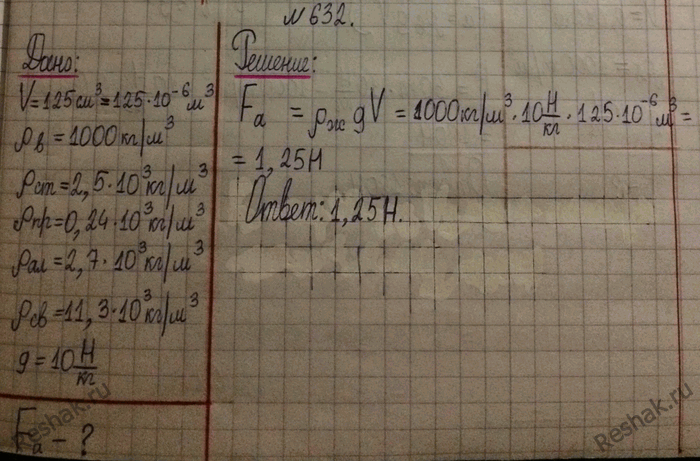 №632.
Дано:
V=125см³=125·10⁻⁶м³
ρв=1000кг/м³
ρст=2,5·10³кг/м³
ρпр=0,24·10³кг/м³
ρал=2,7·10³кг/м³
ρсв=11,3·10³кг/м³
g=10 Н/кг
Fа-?
Решение:
Fа = ρж gV = 1000кг/м³·10 Н/кг·125·10⁻⁶м³=
=1,25Н
Ответ: 1,25Н.
Reshak.ru
Reshak.ru